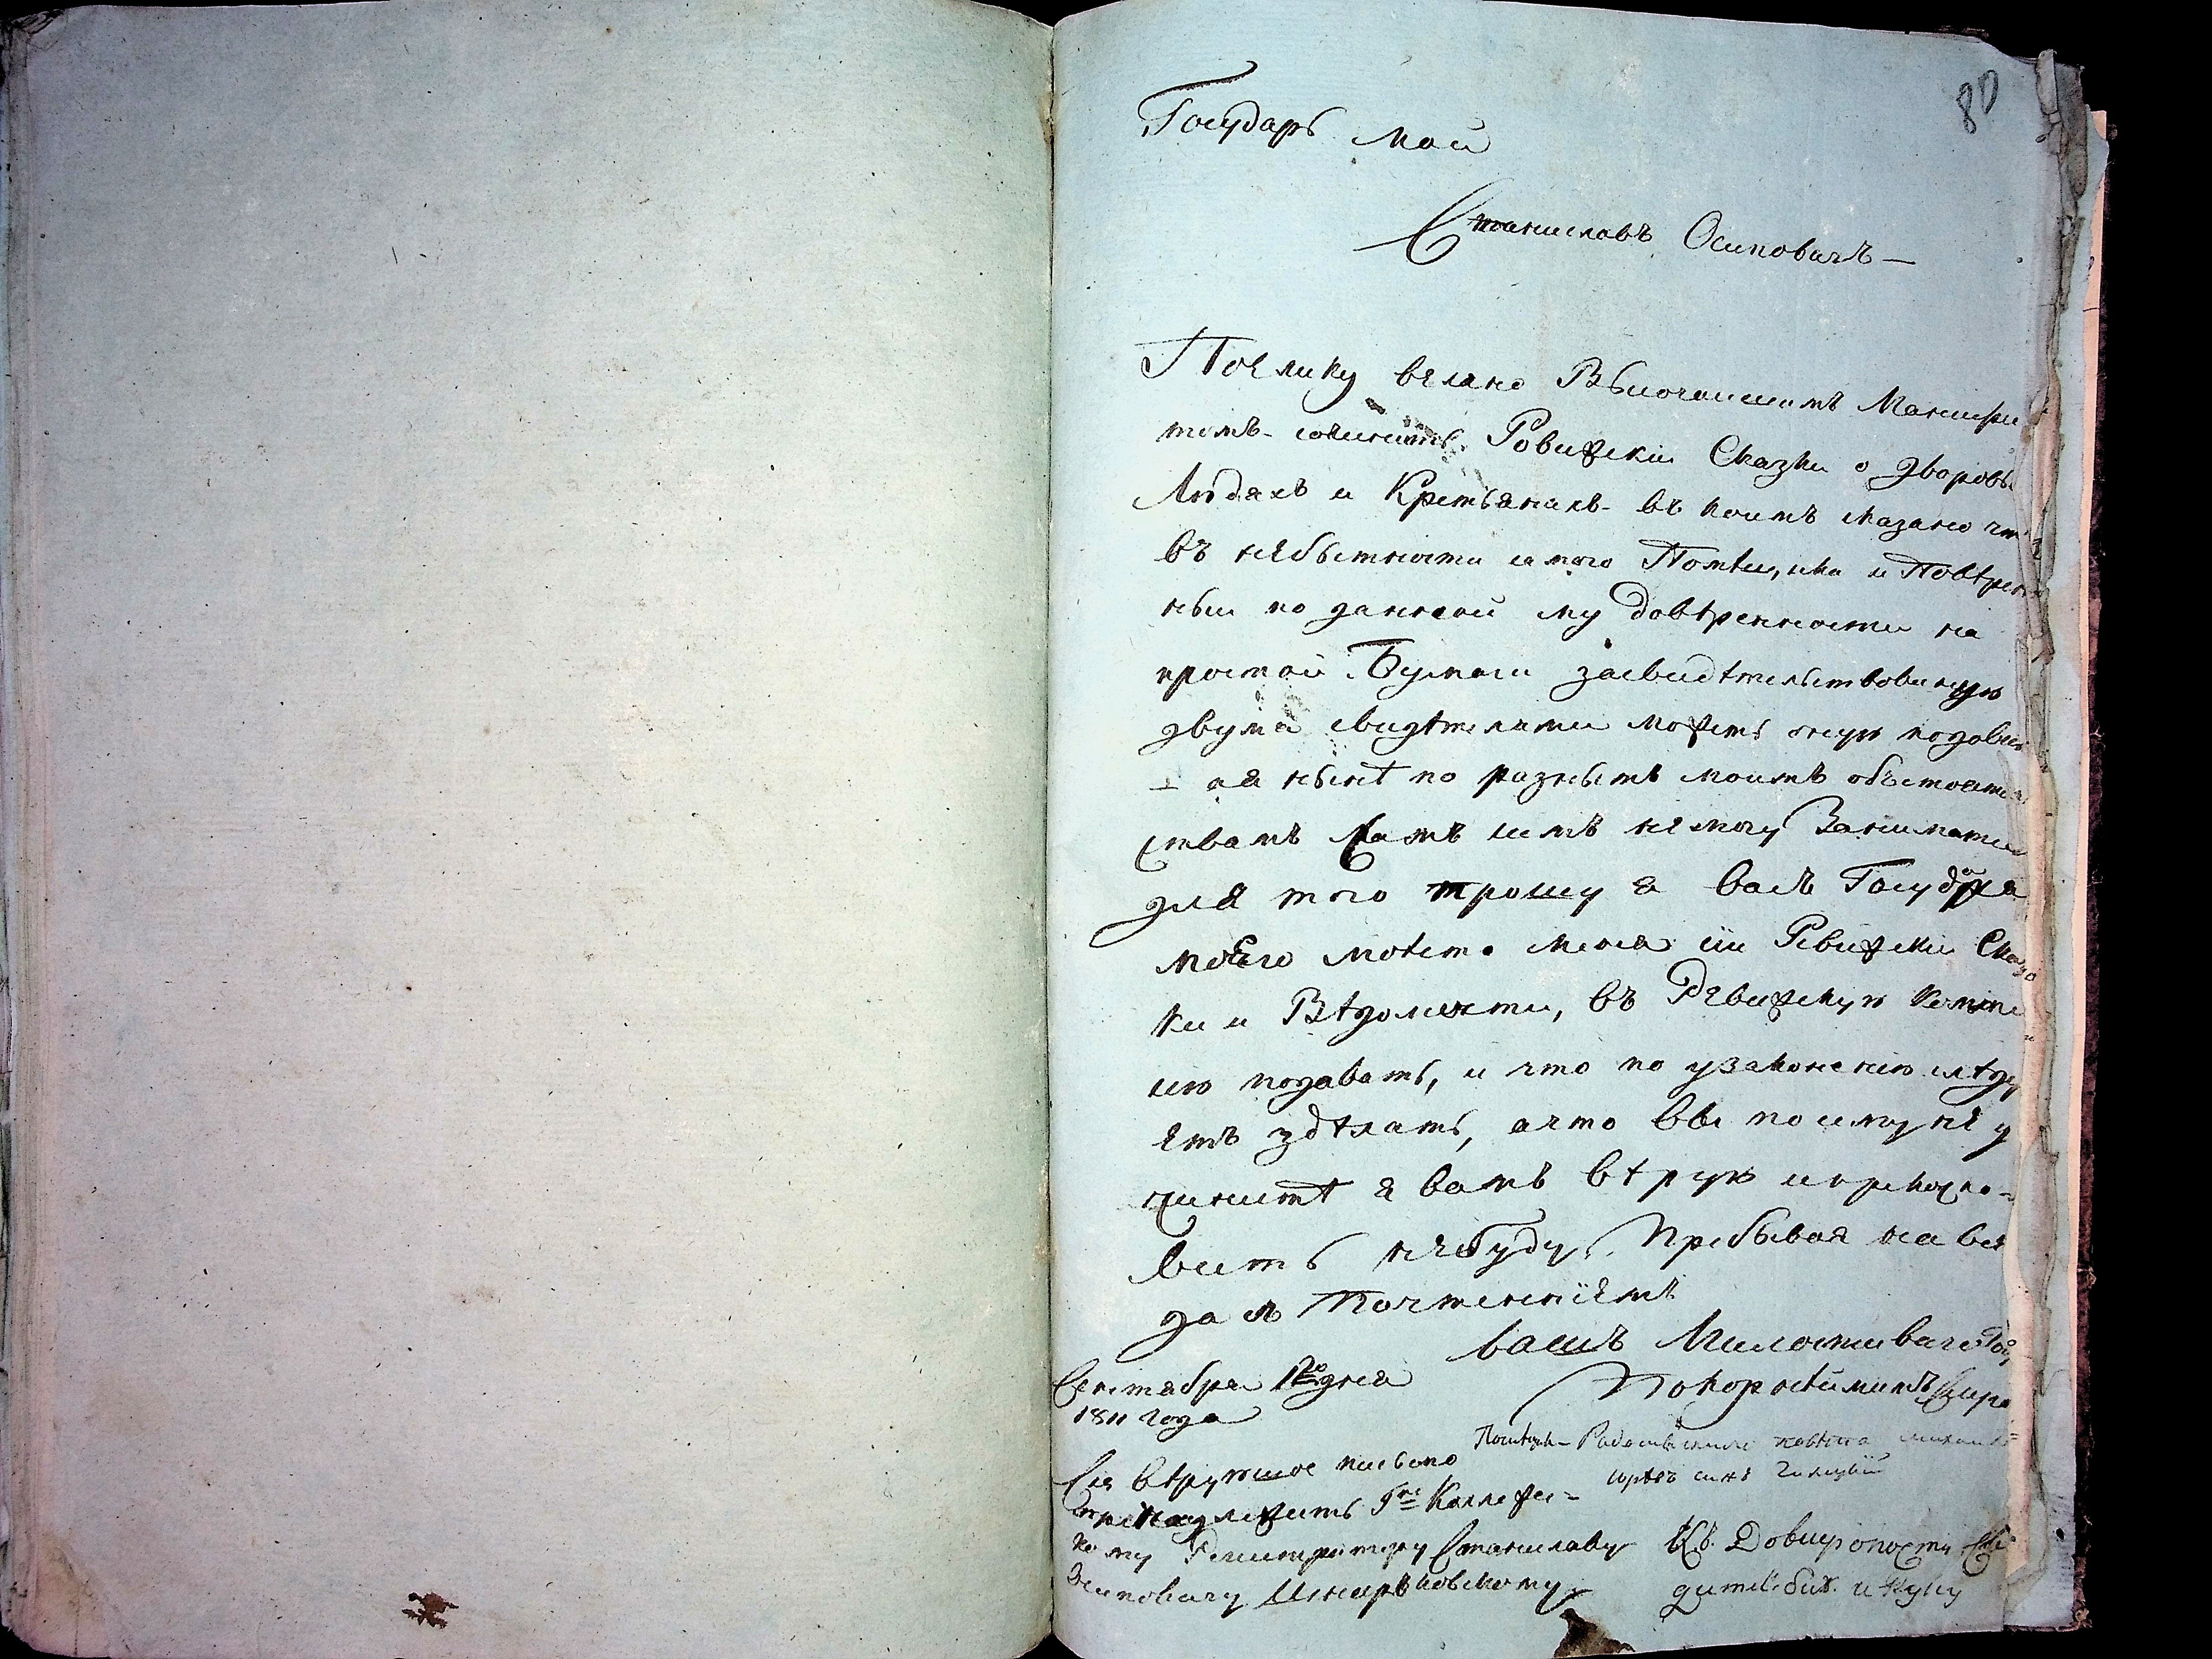 80
Государь мой
Станиславъ Осиповичъ —
Поелику велено Высочаишимъ Манифе
томъ сочинить Ревижскіи Сказки о дворовы
Людяхъ и Крестьянахъ въ коимъ сказано что
въ небытности самого Помѣщика и Повѣрен
ныи по данной ему довѣренности на
простой Бумаги засвидѣтельствованую
двума свидѣтелями можетъ оную подовать
ая нынѣ по разнымъ моимъ обстоятел
ствамъ Самъ симъ немогу Заниматся
для того прошу я васъ Государя
моего мѣсто меня сіи Ревижски Сказ
ки и Вѣдомости, въ Ревижскую Коммис
ию подавать, и что по узаконенію слѣду
етъ здѣлать, ачто вы по сему не у
чините я вамъ вѣрую и прекосло-
вить небуду, Пребывая на все
да съ Почтеніемъ
вашъ Милостиваго Го
Покорнѣйшимъ
Сентабра 12го дня
1811 года
Помѣщик
сынъ
Сія вѣрующое писмо
принадлежитъ Гну Колежс-
кому Регистратору Станиславу
Осиповичу
Къ Довироности Сви
дителб. и Руку